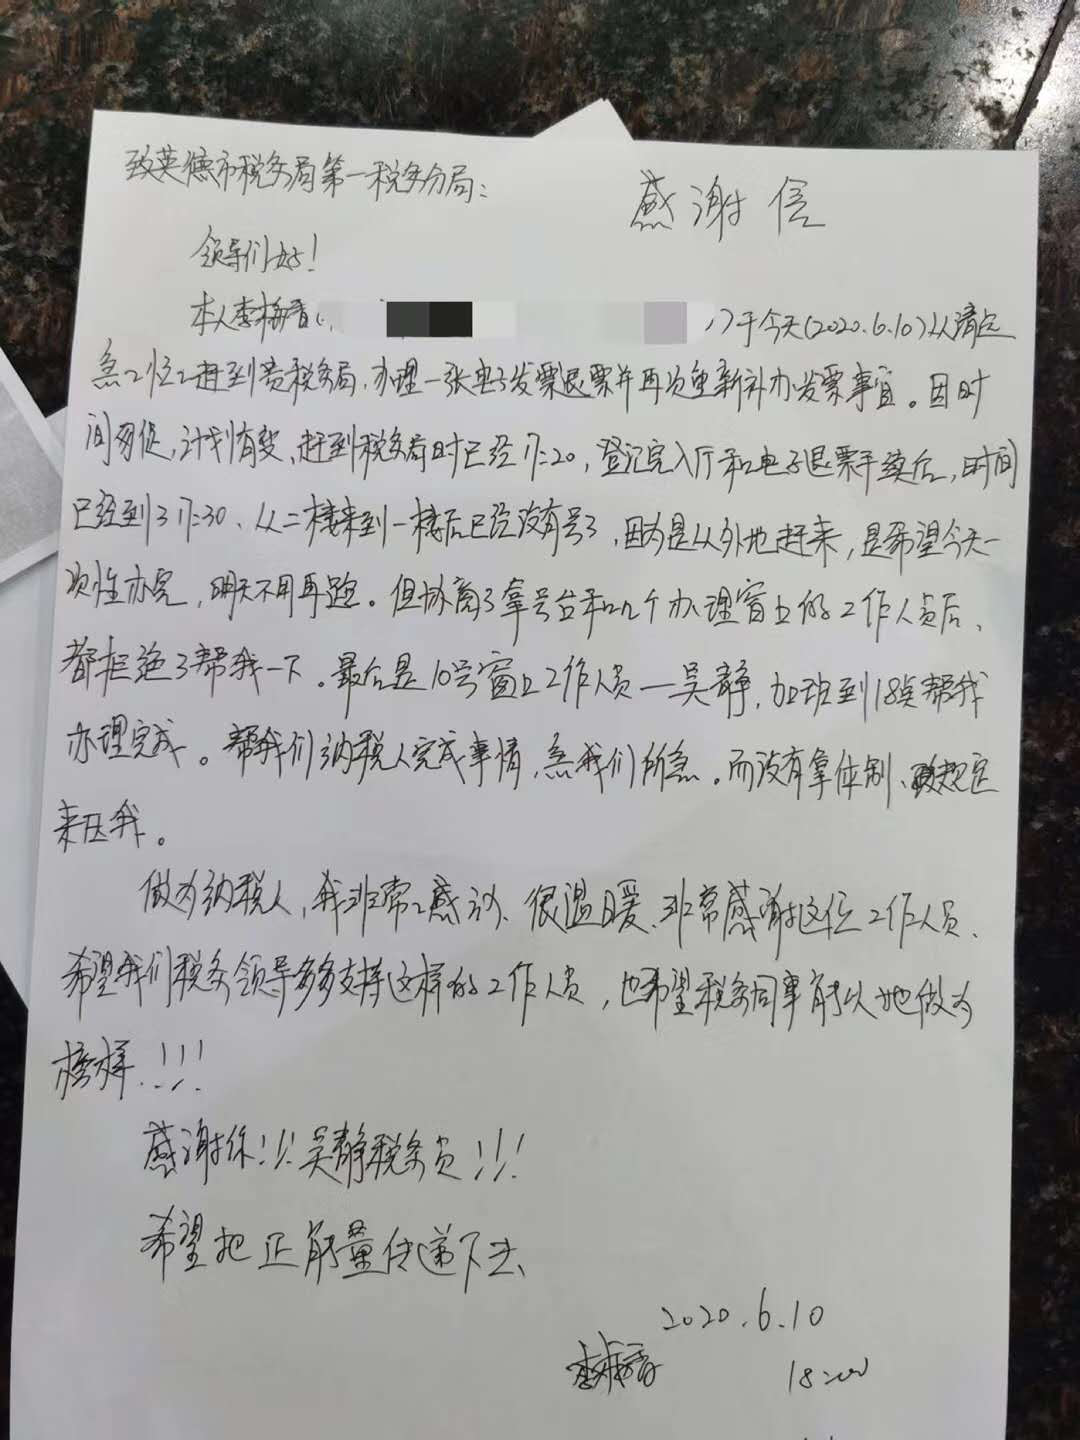 感谢信
致英德市税务局第一税务分局：
领导们好！
本人李梅香( )于今天(2020.6.10)从清远
急急忙忙赶到贵税务局,办理一张电子发票退票并再次重新补办发票事宜。因时
间匆促,计划有变、赶到税务局时已经17:20,登记完入厅和电子退票手续后,时间
已经到了17:30、从二楼来到一楼后已经没有号了,因为是从外地赶来,是希望今天一
次性办完,明天不用再跑。但协商了拿号台和几个办理窗口的工作人员后、
都拒绝了帮我一下。最后是10号窗口工作人员—吴静,加班到18点帮我
办理完成。帮我们纳税人完成事情,急我们所急。而没有拿体制、规定
来压我。
做为纳税人,我非常感动、很温暖、非常感谢这位工作人员、
希望我们税务领导多多支持这样的工作人员,也希望税务同事能以她做为
榜样.!!!
感谢你!!!吴静税务员!!!
希望把正能量传递下去、
2020.6.10
李梅香 18:00